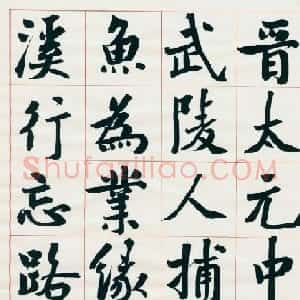 晋太元中
武陵人捕
魚為業緣
溪行忘路
Shufaziliao.COM